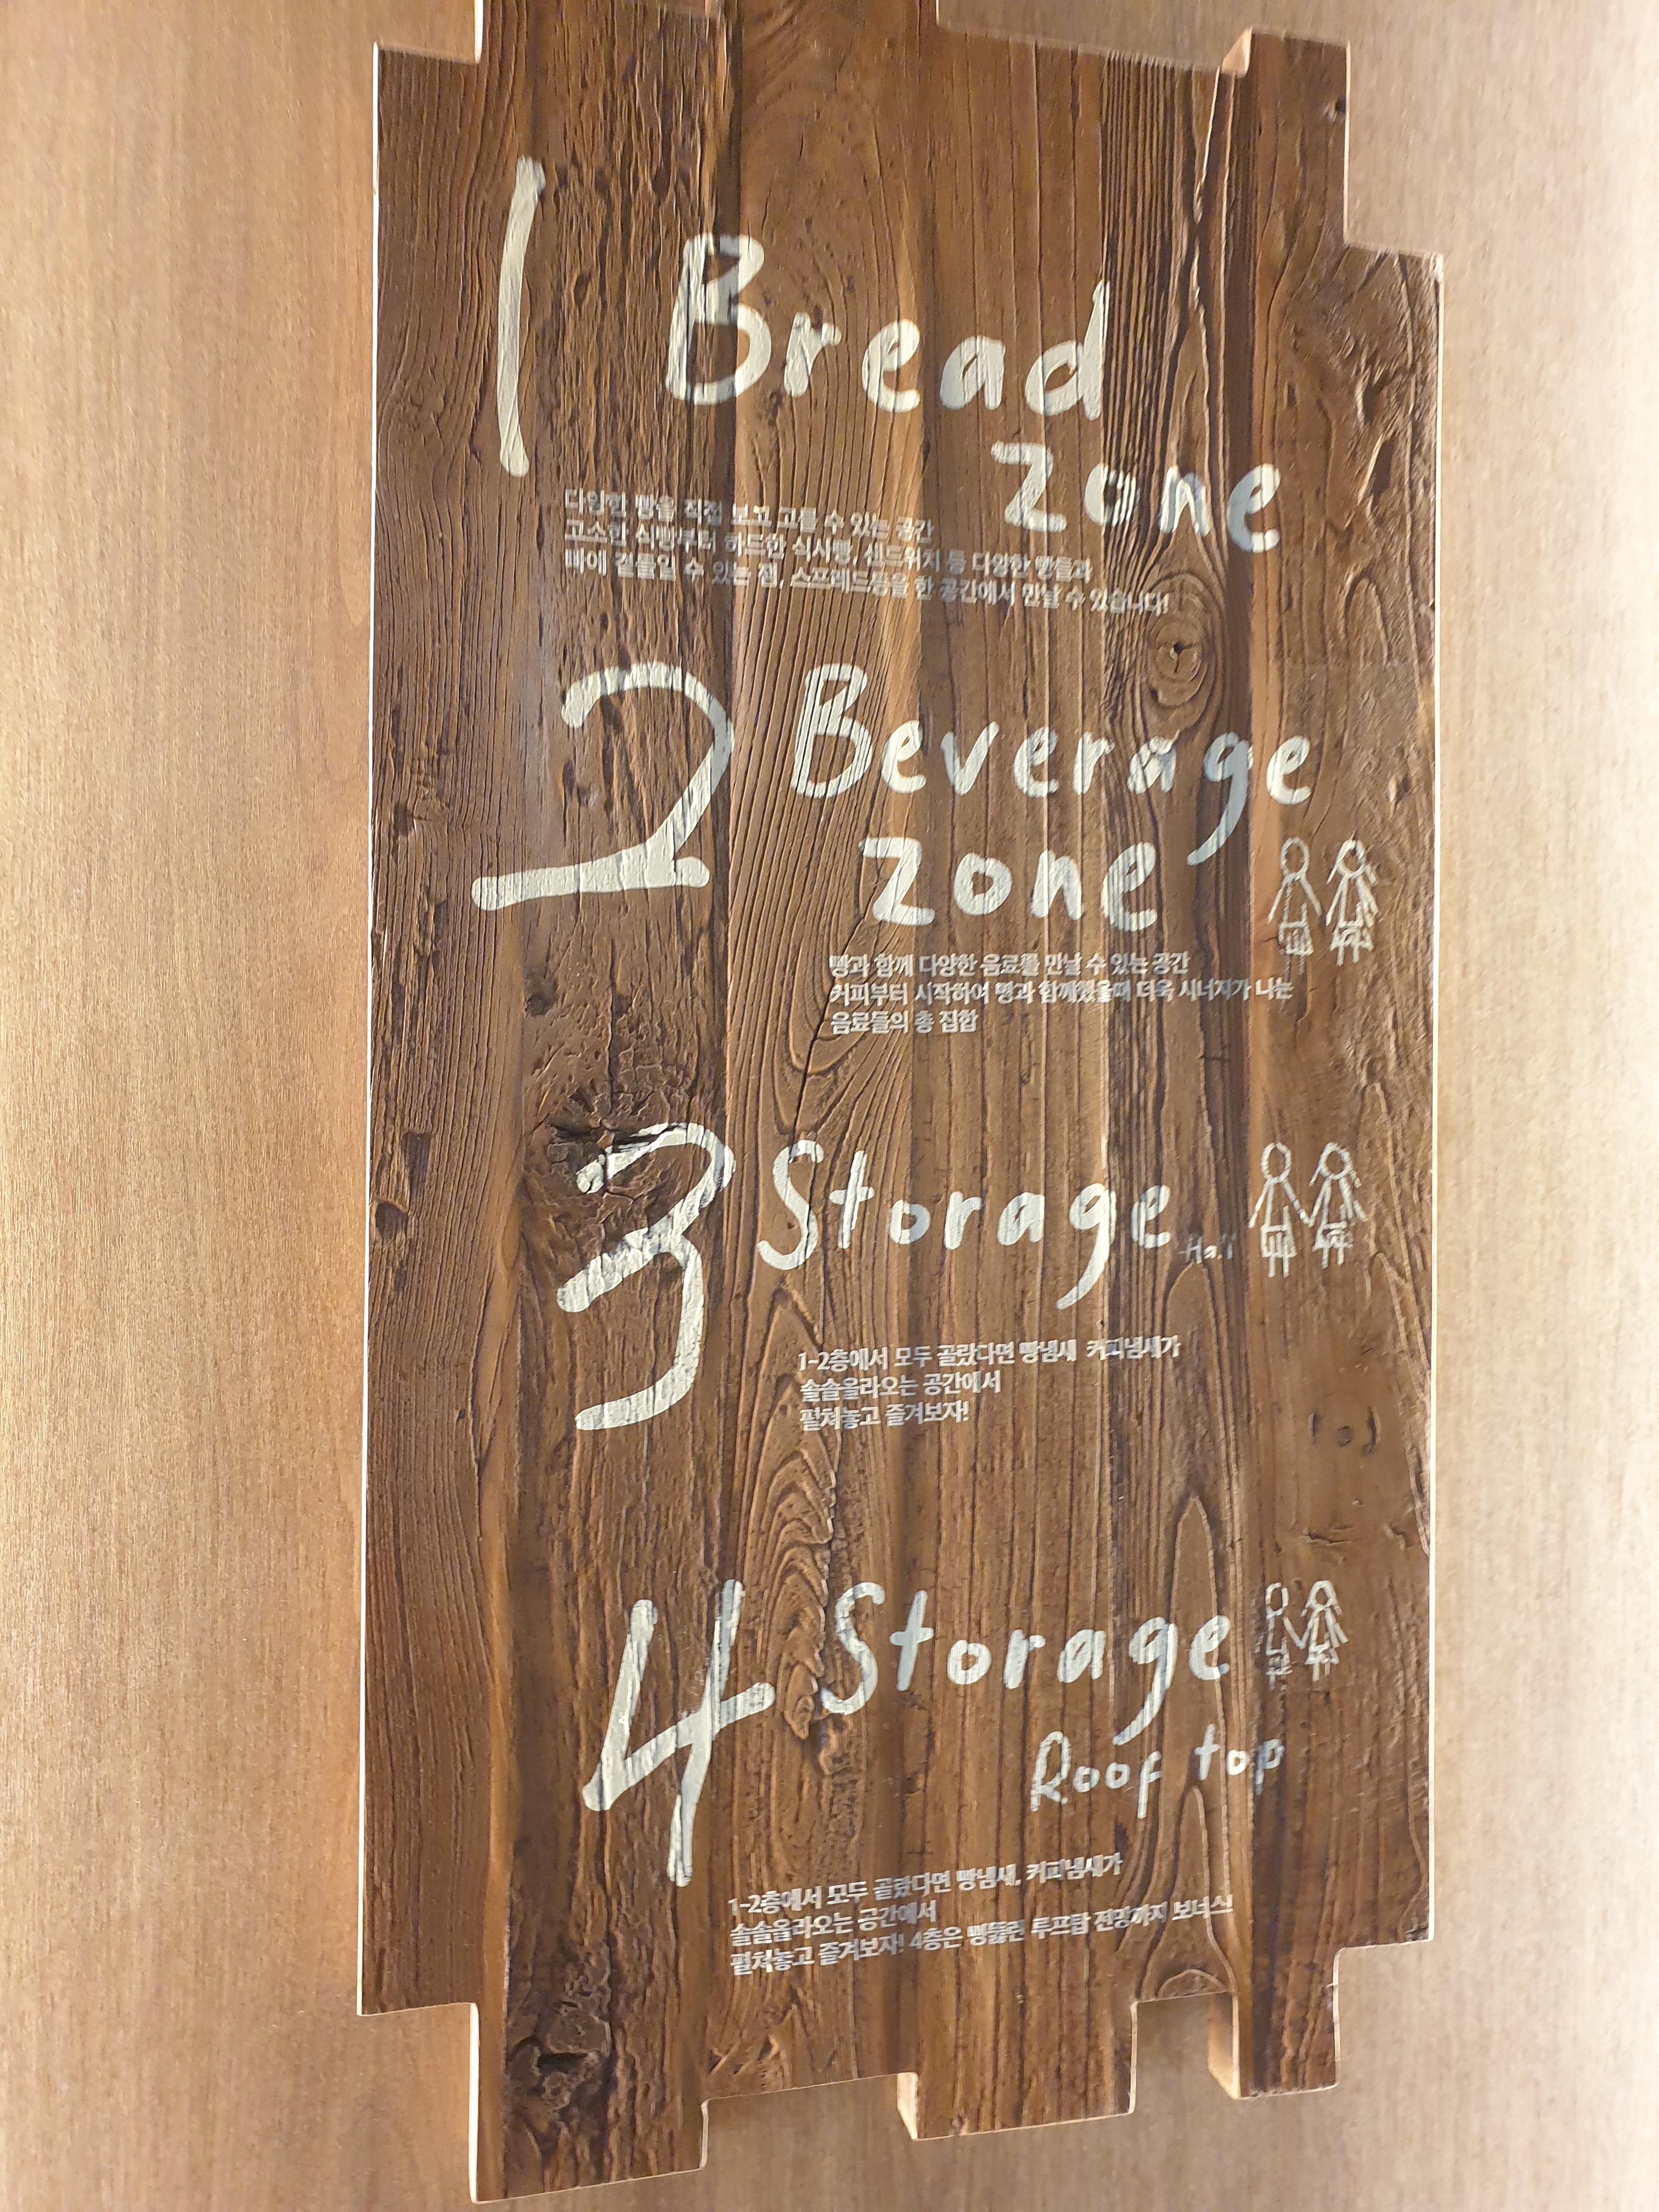 1
Bread
zone
다양한 빵을 직접 보고 고를 수 있는 공간
고소한 식빵부터 하드한 식사빵, 샌드위치 등 다양한 빵들과
빠에 곁들일 수 있는 잼, 스프레드등을 한 공간에서 만날 수 있습니다!
2
Beverage
zone
빵과 함께 다양한 음료를 만날 수 있는 공간
커피부터 시작하여 빵과 함께했을때 더욱 시너지가 나는
음료들의 총 집합
3
Storage Hall
1-2층에서 모두 골랐다면 빵냄새 커피냄새가
솔솔올라오는 공간에서
펼쳐놓고 즐겨보자!
4
Storage
Roof top
1-2층에서 모두 골랐다면 빵냄새, 커피냄새가
솔솔올라오는 공간에서
펼쳐놓고 즐겨보자! 4층은 뻥뚫린 루프탑 전망까지 보너스!